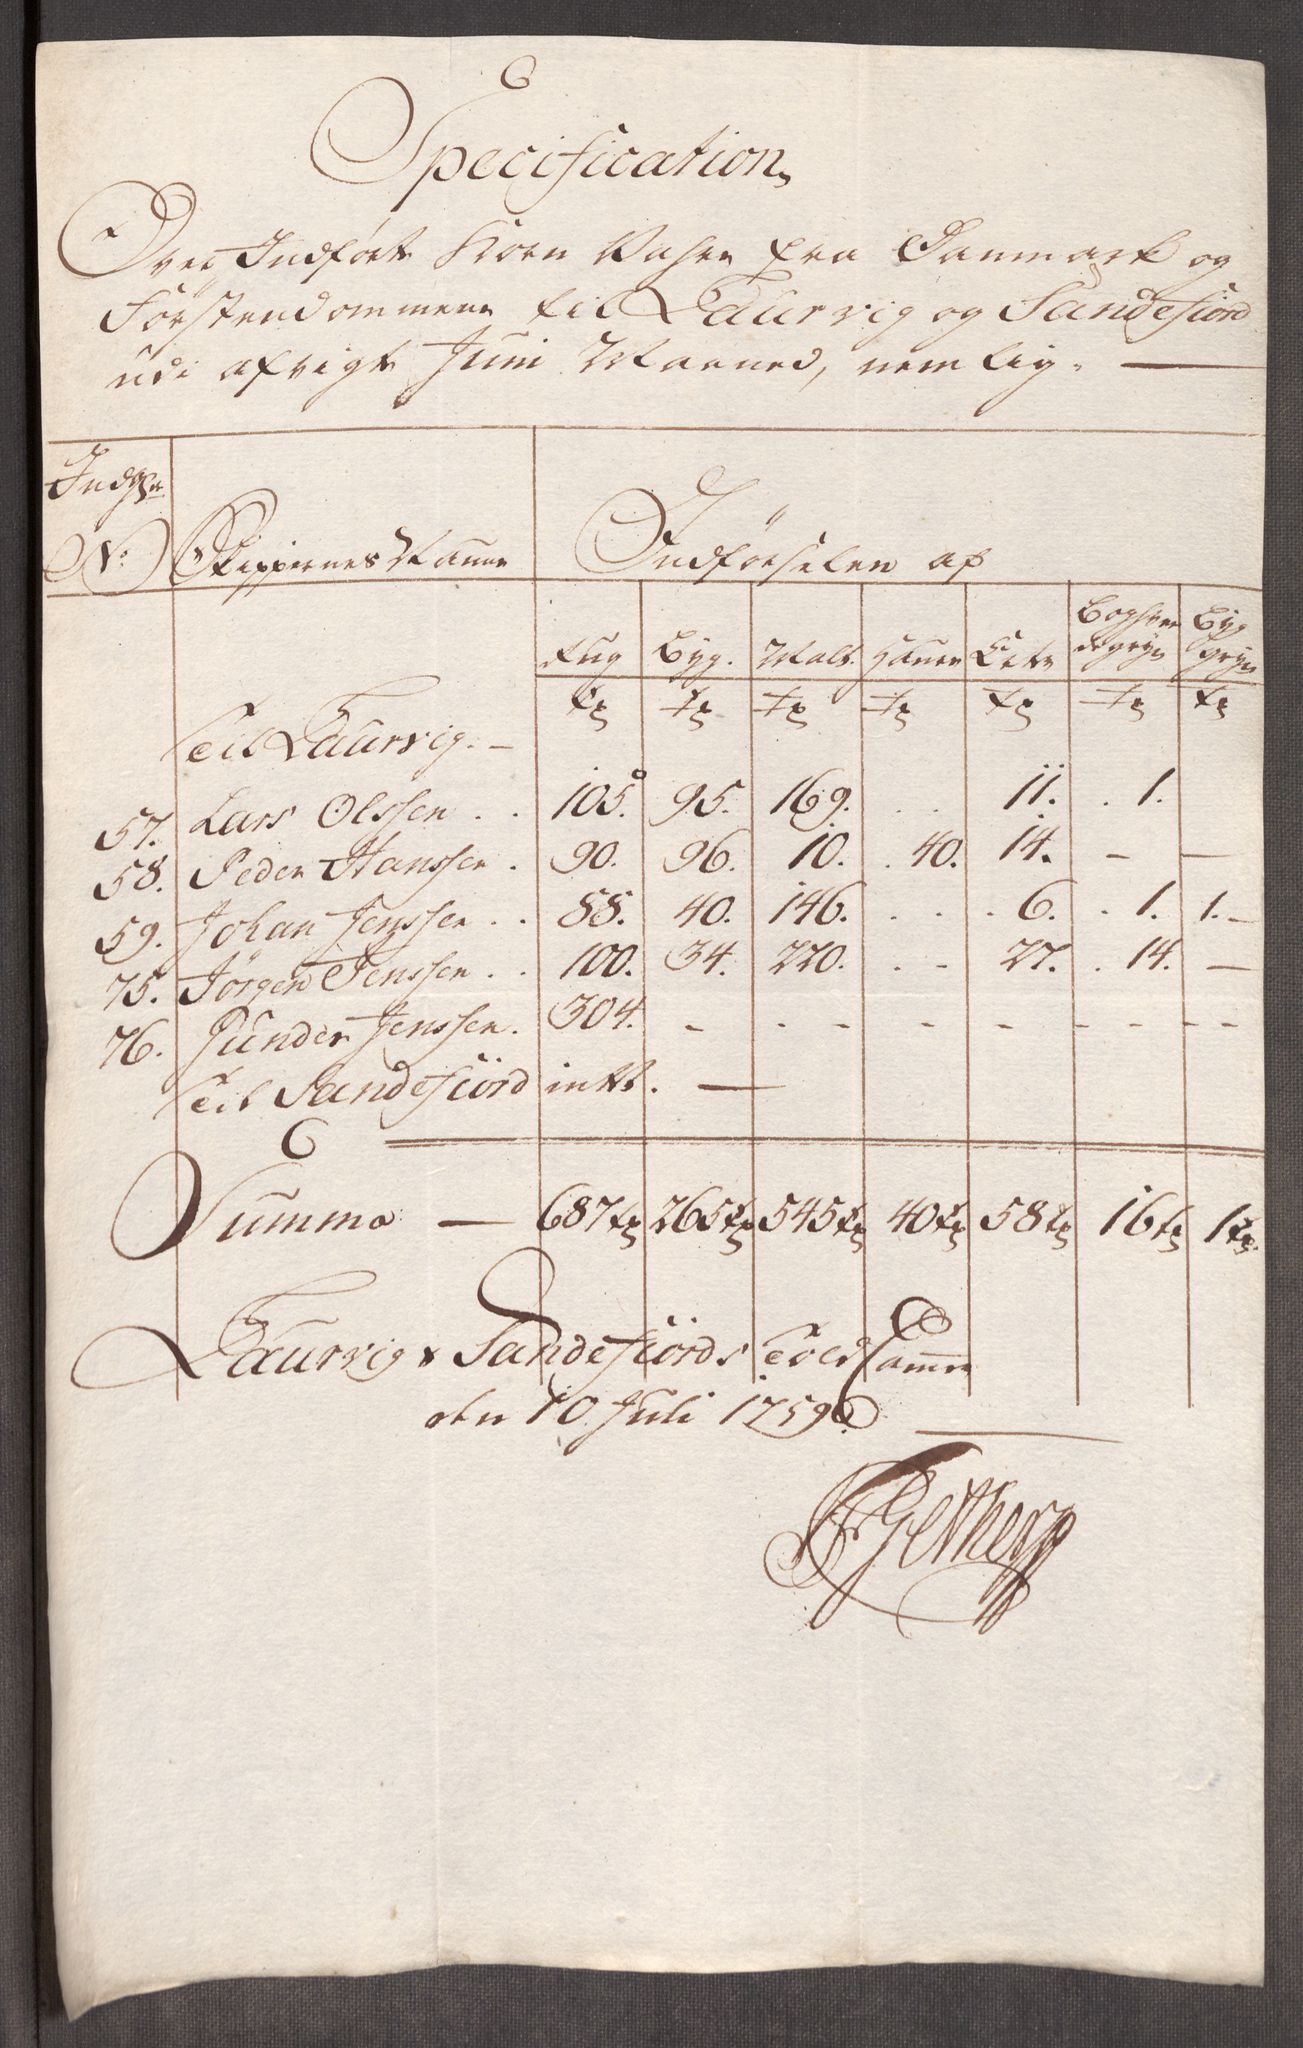 Specification
Over Indført Korn Vahre fra Danmark og
Førstendommene til Laurvig og Sandefiord
udi afvigte Juni Maaned, nemlig. —
Indg:
No: Skippernes Nafne Indførselen af
Rug Byg. Malt. Haure Erter Boghvede gryn Byg gryn
Tr Tr Tr Tr Tr Tr Tr
Til Laurvig. —
57. Lars Olssen . . 105. 95. 169. . . 11. . 1.
58. Peder Hanssen . 90. 96. 10. . 40. 14. — —
59. Johan Jenssen . . 88. 40. 146. . . . 6. . 1. 1. —
75. Jørgen Jenssen . . 100. 34. 220. . . 27. . 14. —
76. Junder Jenssen. 304. - - - - - - - - -
Til Sandefiord intet. —
Summa — 687 Tr 265 Tr 545 Tr 40 Tr 58 Tr 16 Tr 1 Tr.
Laurvig & Sandefiords Told Kamer
den 10 Juli 1759. —